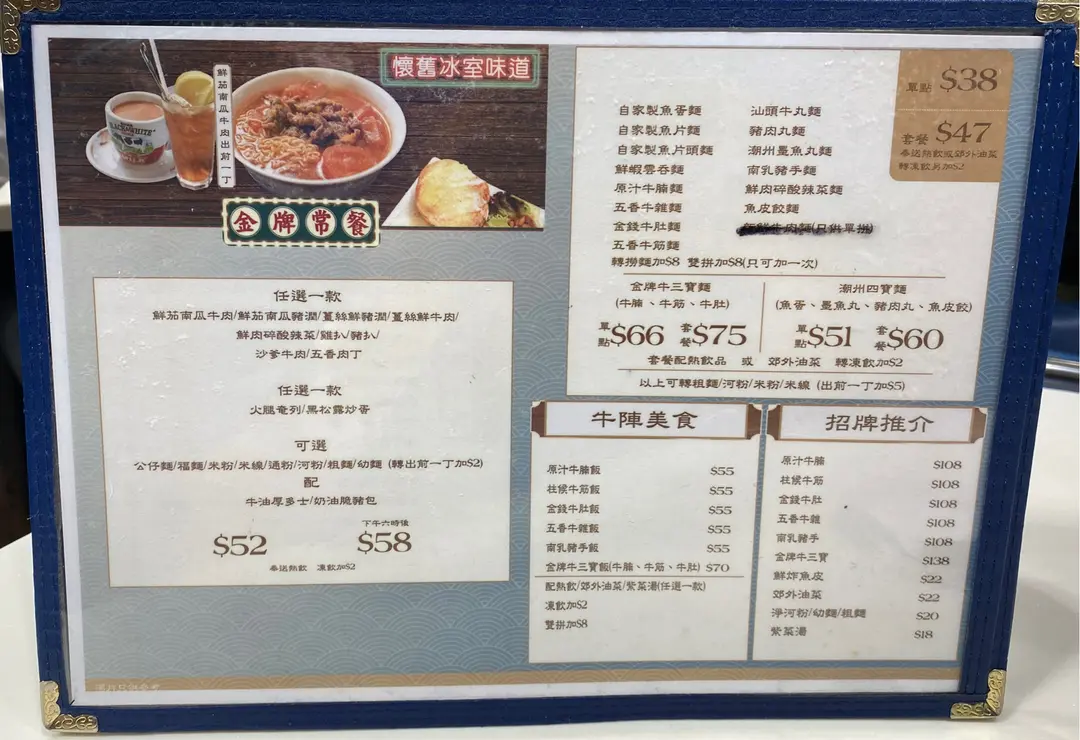 懷舊冰室味道
鮮茄南瓜牛肉出前一丁
BLACK&WHITE
金牌常餐
任選一款
鮮茄南瓜牛肉/鮮茄南瓜豬潤/薑絲鮮豬潤/薑絲鮮牛肉/
鮮肉碎酸辣菜/雞扒/豬扒/
沙爹牛肉/五香肉丁
任選一款
火腿奄列/黑松露炒蛋
可選
公仔麵/福麵/米粉/米線/通粉/河粉/粗麵/幼麵 (轉出前一丁加$2)
配
牛油厚多士/奶油脆豬包
下午六時後
$52 $58
奉送熱飲 凍飲加$2
單點 $38
套餐 $47
奉送熱飲或郊外油菜
轉凍飲另加$2
自家製魚蛋麵 汕頭牛丸麵
自家製魚片麵 豬肉丸麵
自家製魚片頭麵 潮州墨魚丸麵
鮮蝦雲吞麵 南乳豬手麵
原汁牛腩麵 鮮肉碎酸辣菜麵
五香牛雜麵 魚皮餃麵
金錢牛肚麵 牛肉麵(只供單拼)
五香牛筋麵
轉撈麵加$8 雙拼加$8(只可加一次)
金牌牛三寶麵
(牛腩、牛筋、牛肚)
單點$66 套餐$75
潮州四寶麵
(魚蛋、墨魚丸、豬肉丸、魚皮餃)
單點$51 套餐$60
套餐配熱飲品 或 郊外油菜 轉凍飲加$2
以上可轉粗麵/河粉/米粉/米線 (出前一丁加$5)
牛陣美食
原汁牛腩飯 $55
柱候牛筋飯 $55
金錢牛肚飯 $55
五香牛雜飯 $55
南乳豬手飯 $55
金牌牛三寶飯(牛腩、牛筋、牛肚) $70
配熱飲/郊外油菜/紫菜湯(任選一款)
凍飲加$2
雙拼加$8
招牌推介
原汁牛腩 $108
柱候牛筋 $108
金錢牛肚 $108
五香牛雜 $108
南乳豬手 $108
金牌牛三寶 $138
鮮炸魚皮 $22
郊外油菜 $22
淨河粉/幼麵/粗麵 $20
紫菜湯 $18